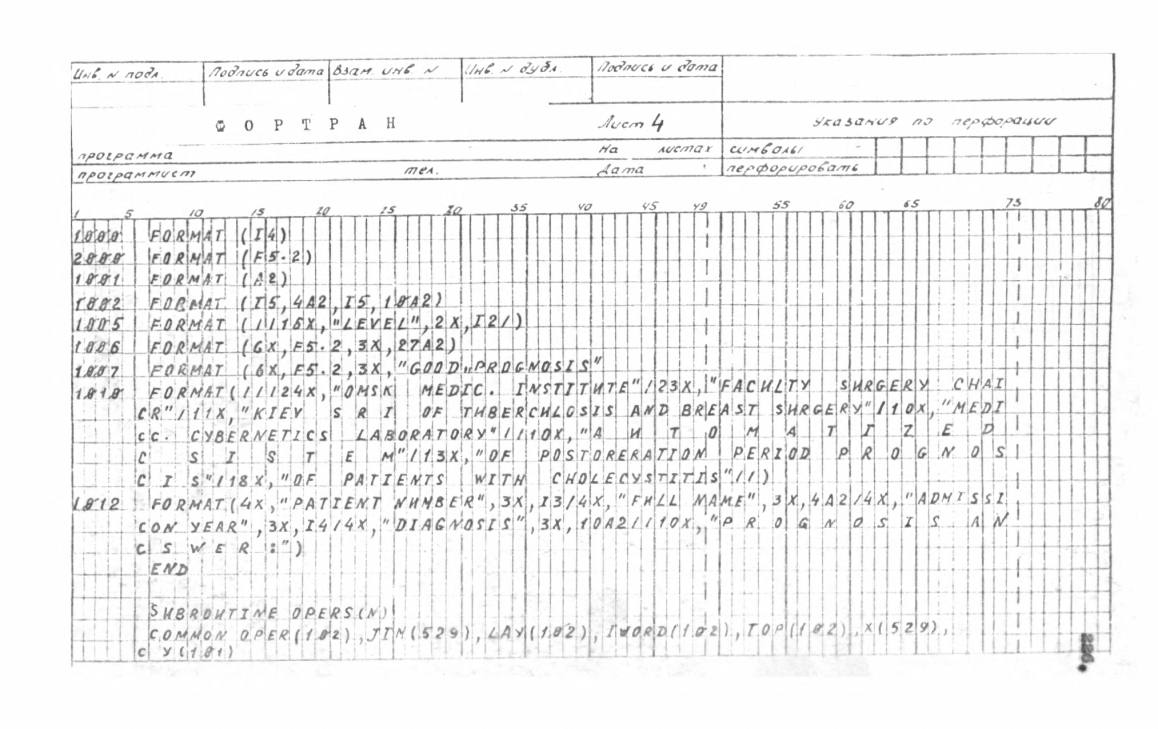 Инв. N подл. Подпись и дата Взам. инв. N Инв. N дубл. Подпись и дата
ФОРТРАН Лист 4 Указания по перфорации
программа На листах символы
программист тел. Дата перфорировать
1 5 10 15 20 25 30 35 40 45 49 55 60 65 75 80
1000 FORMAT (I4)
2000 FORMAT (F5.2)
1001 FORMAT (A2)
1002 FORMAT (I5,4A2,I5,10A2)
1005 FORMAT (//15X,"LEVEL",2X,I2/)
1006 FORMAT (6X,F5.2,3X,27A2)
1007 FORMAT (6X,F5.2,3X,"GOOD PROGNOSIS"
1010 FORMAT(///24X,"OMSK MEDIC. INSTITUTE"/23X,"FACULTY SURGERY CHAI
CR"/11X,"KIEV S R I OF TUBERCULOSIS AND BREAST SURGERY"/10X,"MEDI
CC. CYBERNETICS LABORATORY"//10X,"A U T O M A T I Z E D
C S I S T E M"/13X,"OF POSTORERATION PERIOD P R O G N O S
C I S"/18X,"OF PATIENTS WITH CHOLECYSTITIS"//)
1012 FORMAT(4X,"PATIENT NUMBER",3X,I3/4X,"FULL NAME",3X,4A2/4X,"ADMISSI
CON YEAR",3X,I4/4X,"DIAGNOSIS",3X,10A2//10X,"P R O G N O S I S A N
C S W E R :")
END
SUBROUTINE OPERS(N)
COMMON OPER(102),JIN(529),LAY(102),IWORD(102),TOP(102),X(529),
C Y(101)
226.